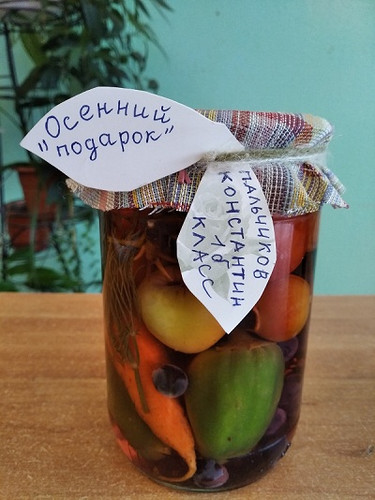 Осенний
"подарок"
Пальчиков
Константин
1б
класс